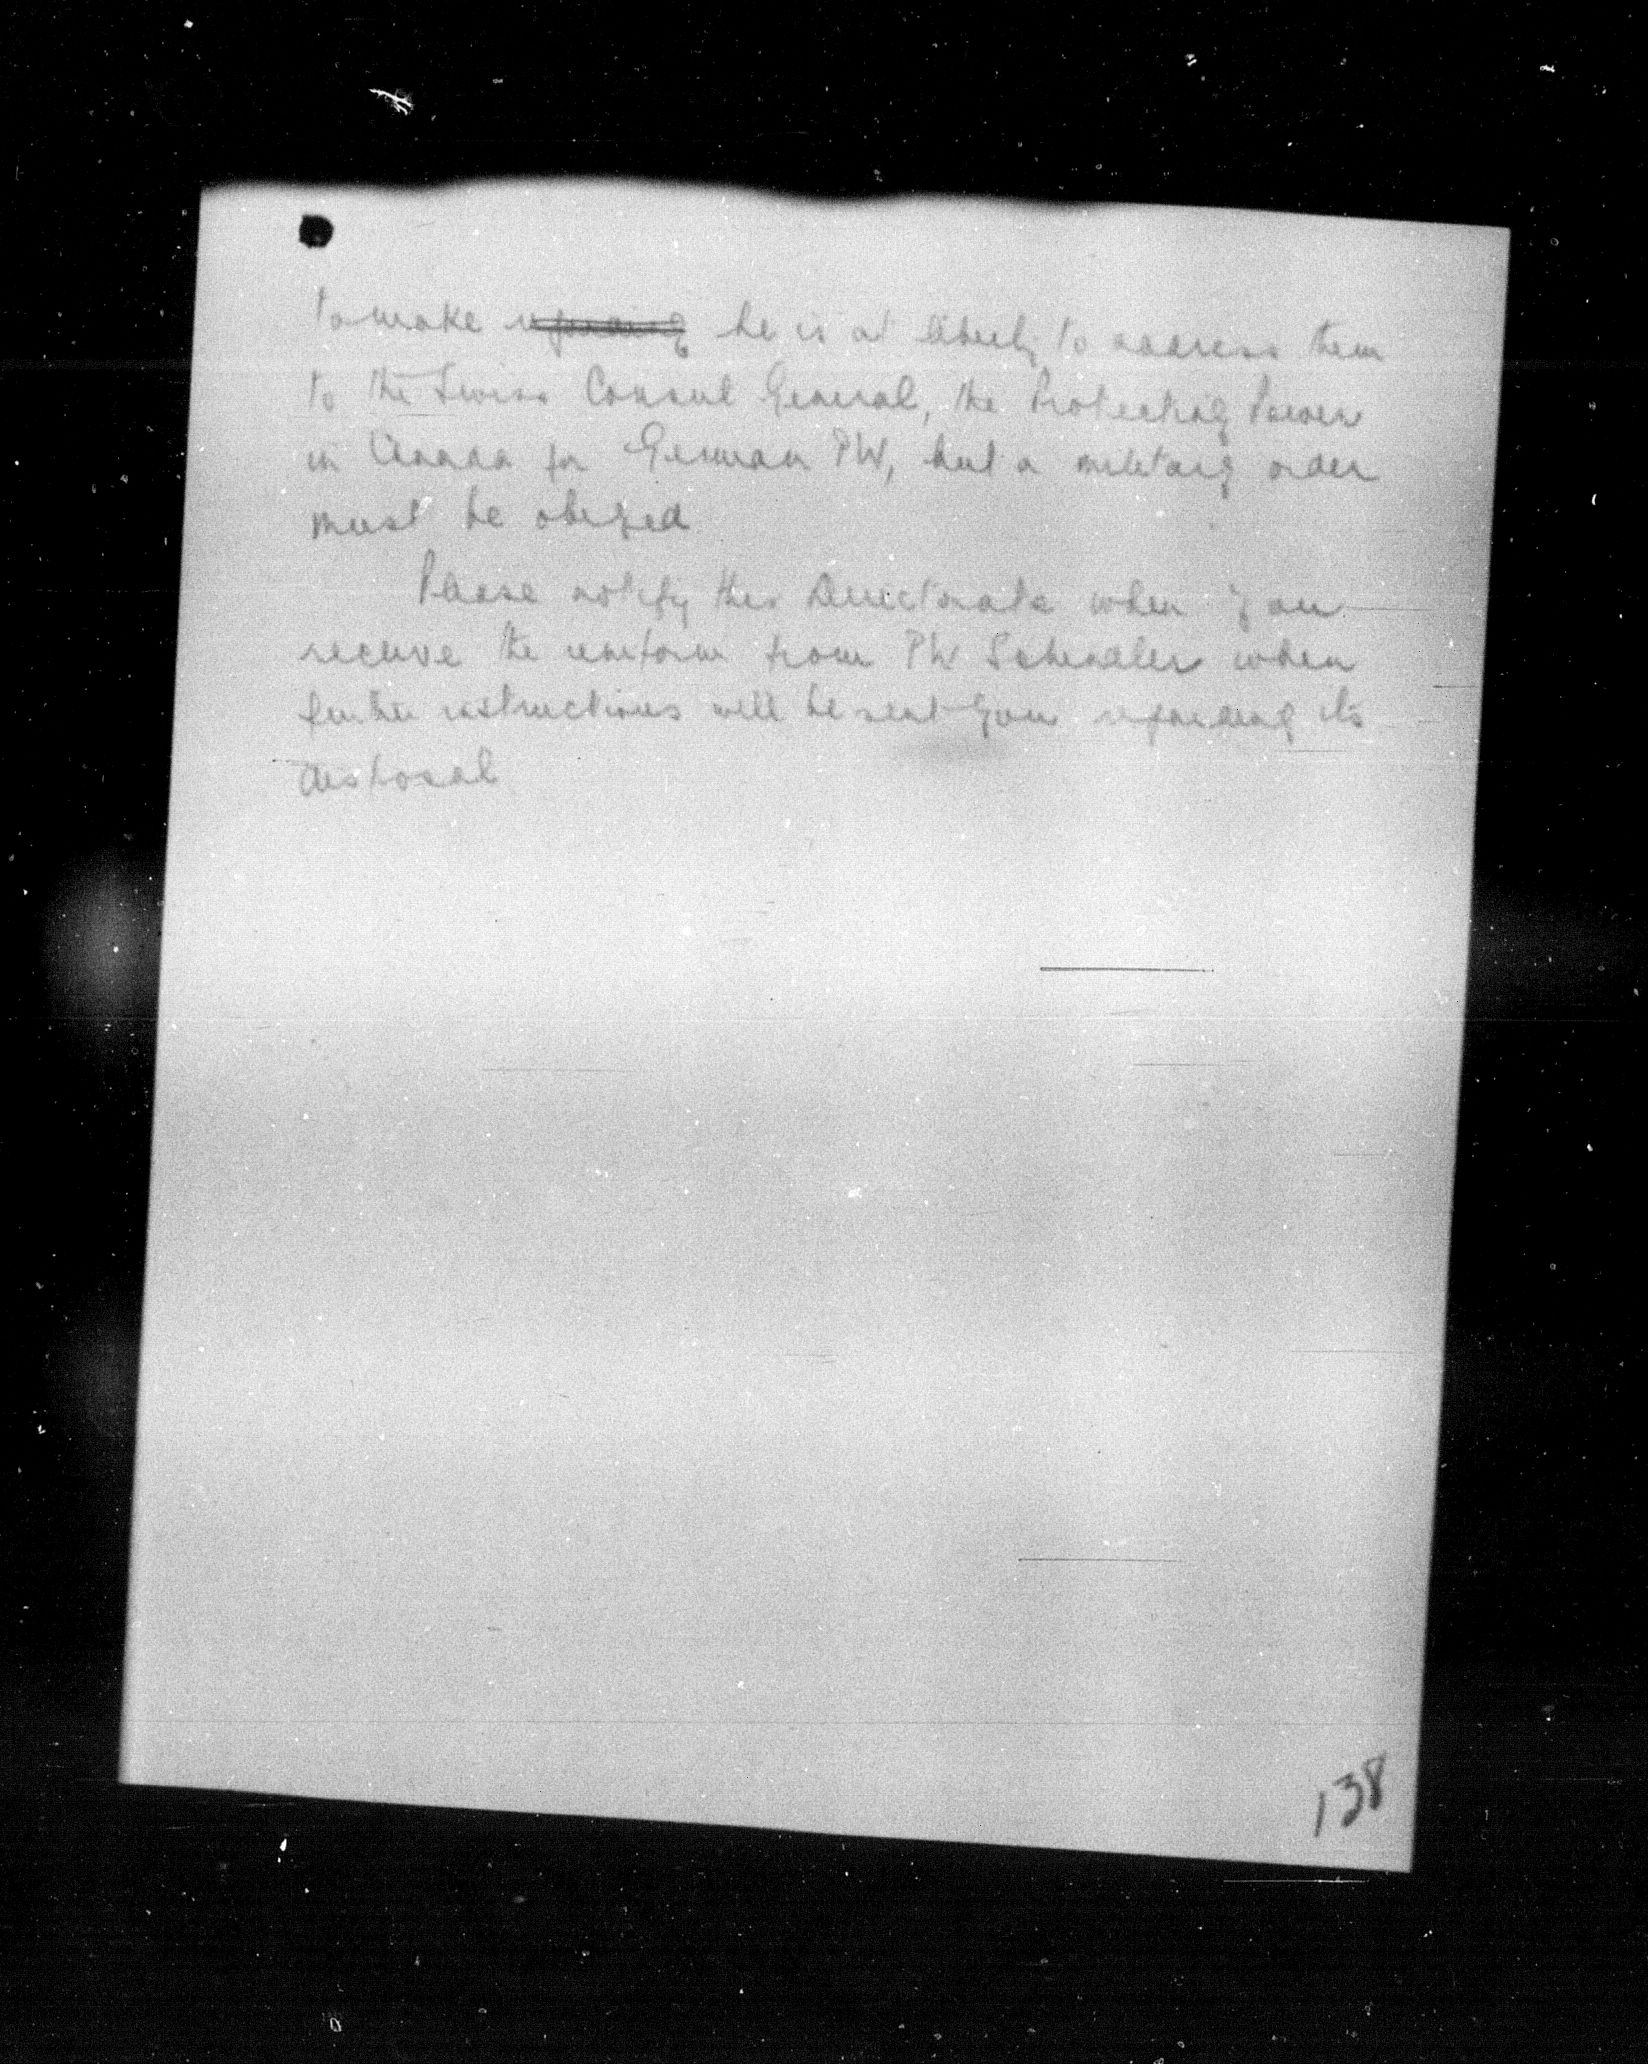 to make ~~regarding~~ he is at liberty to address them
to the Swiss Consul General, the Protecting Power
in Canada for German PW, but a military order
must be obeyed
Please notify this Directorate when you
receive the uniform from PW Schindler when
further instructions will be sent you regarding its
disposal
138